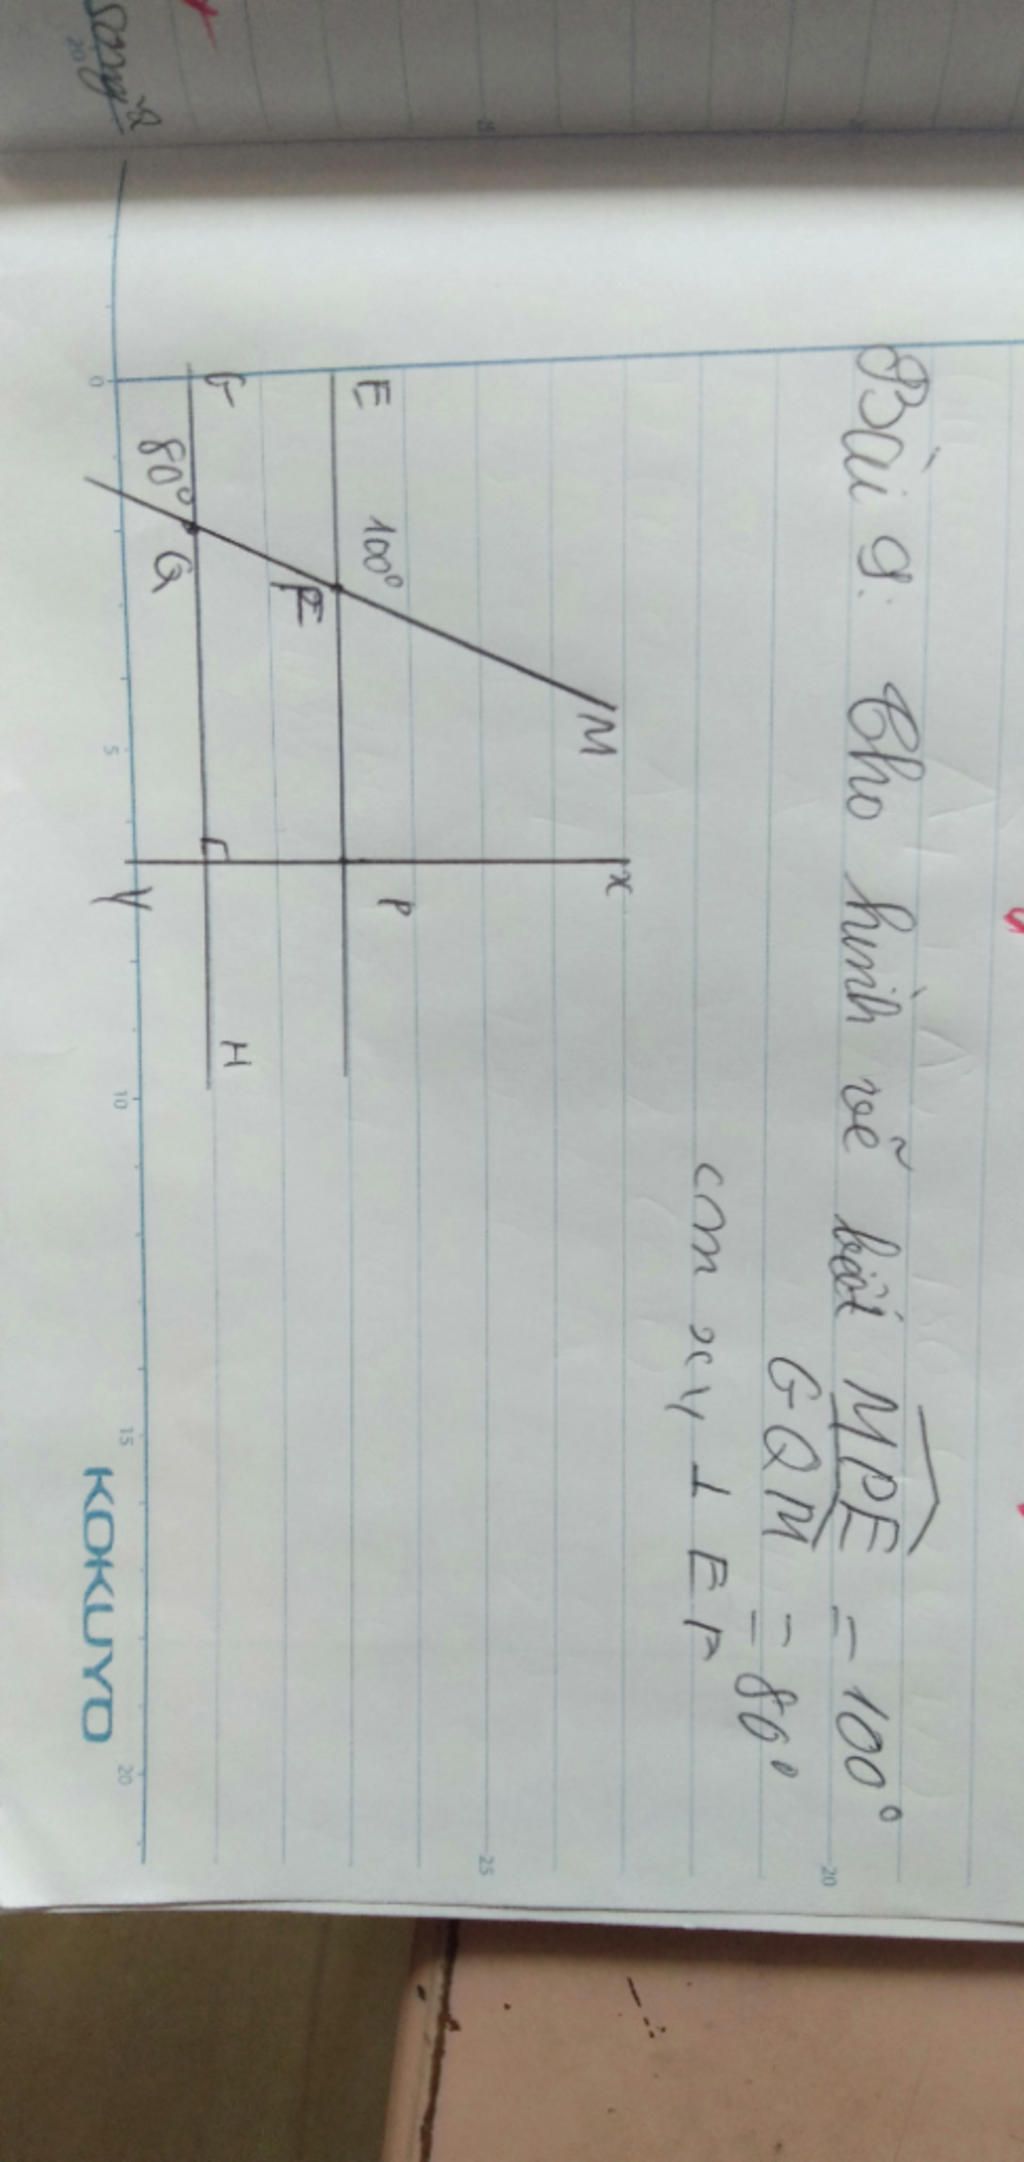 Bài 9: Cho hình vẽ biết MPE = 100°
GQM = 80°
CM xy ⊥ EF
M
x
E
100°
P
F
G
H
80°
Q
y
0
5
10
15
20
25
20
KOKUYO